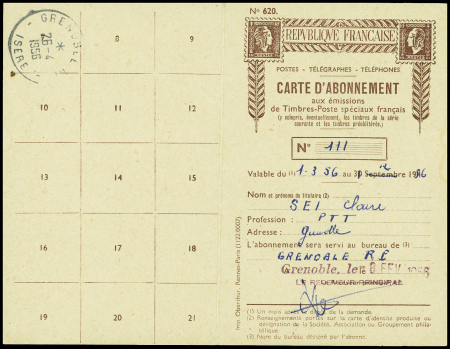 GRENOBLE
*
26-4
1956
ISERE
8
9
10
11
12
13
14
15
16
17
18
19
20
21
Imp. Oberthur, Rennes-Paris (1122-0007)
N° 620.
REPVBLIQVE FRANCAISE
POSTES - TÉLÉGRAPHES - TÉLÉPHONES
CARTE D'ABONNEMENT
aux émissions
de Timbres-Poste spéciaux français
(y compris, éventuellement, les timbres de la série
courante et les timbres préoblitérés.)
N° 111
Valable du (1) 1-3 56 au Septembre 1956
Nom et prénoms du titulaire (2)
SEI Claire
Profession : PTT
Adresse :
L'abonnement sera servi au bureau de (3)
GRENOBLE R.P.
Grenoble, le FEV 1956
LE RECEVEUR PRINCIPAL
(1) Un mois après la date de la demande.
(2) Renseignements portés sur la carte d'identité produite ou
désignation de la Société, Association ou Groupement phila-
télique.
(3) Nom du bureau désigné par l'abonné.